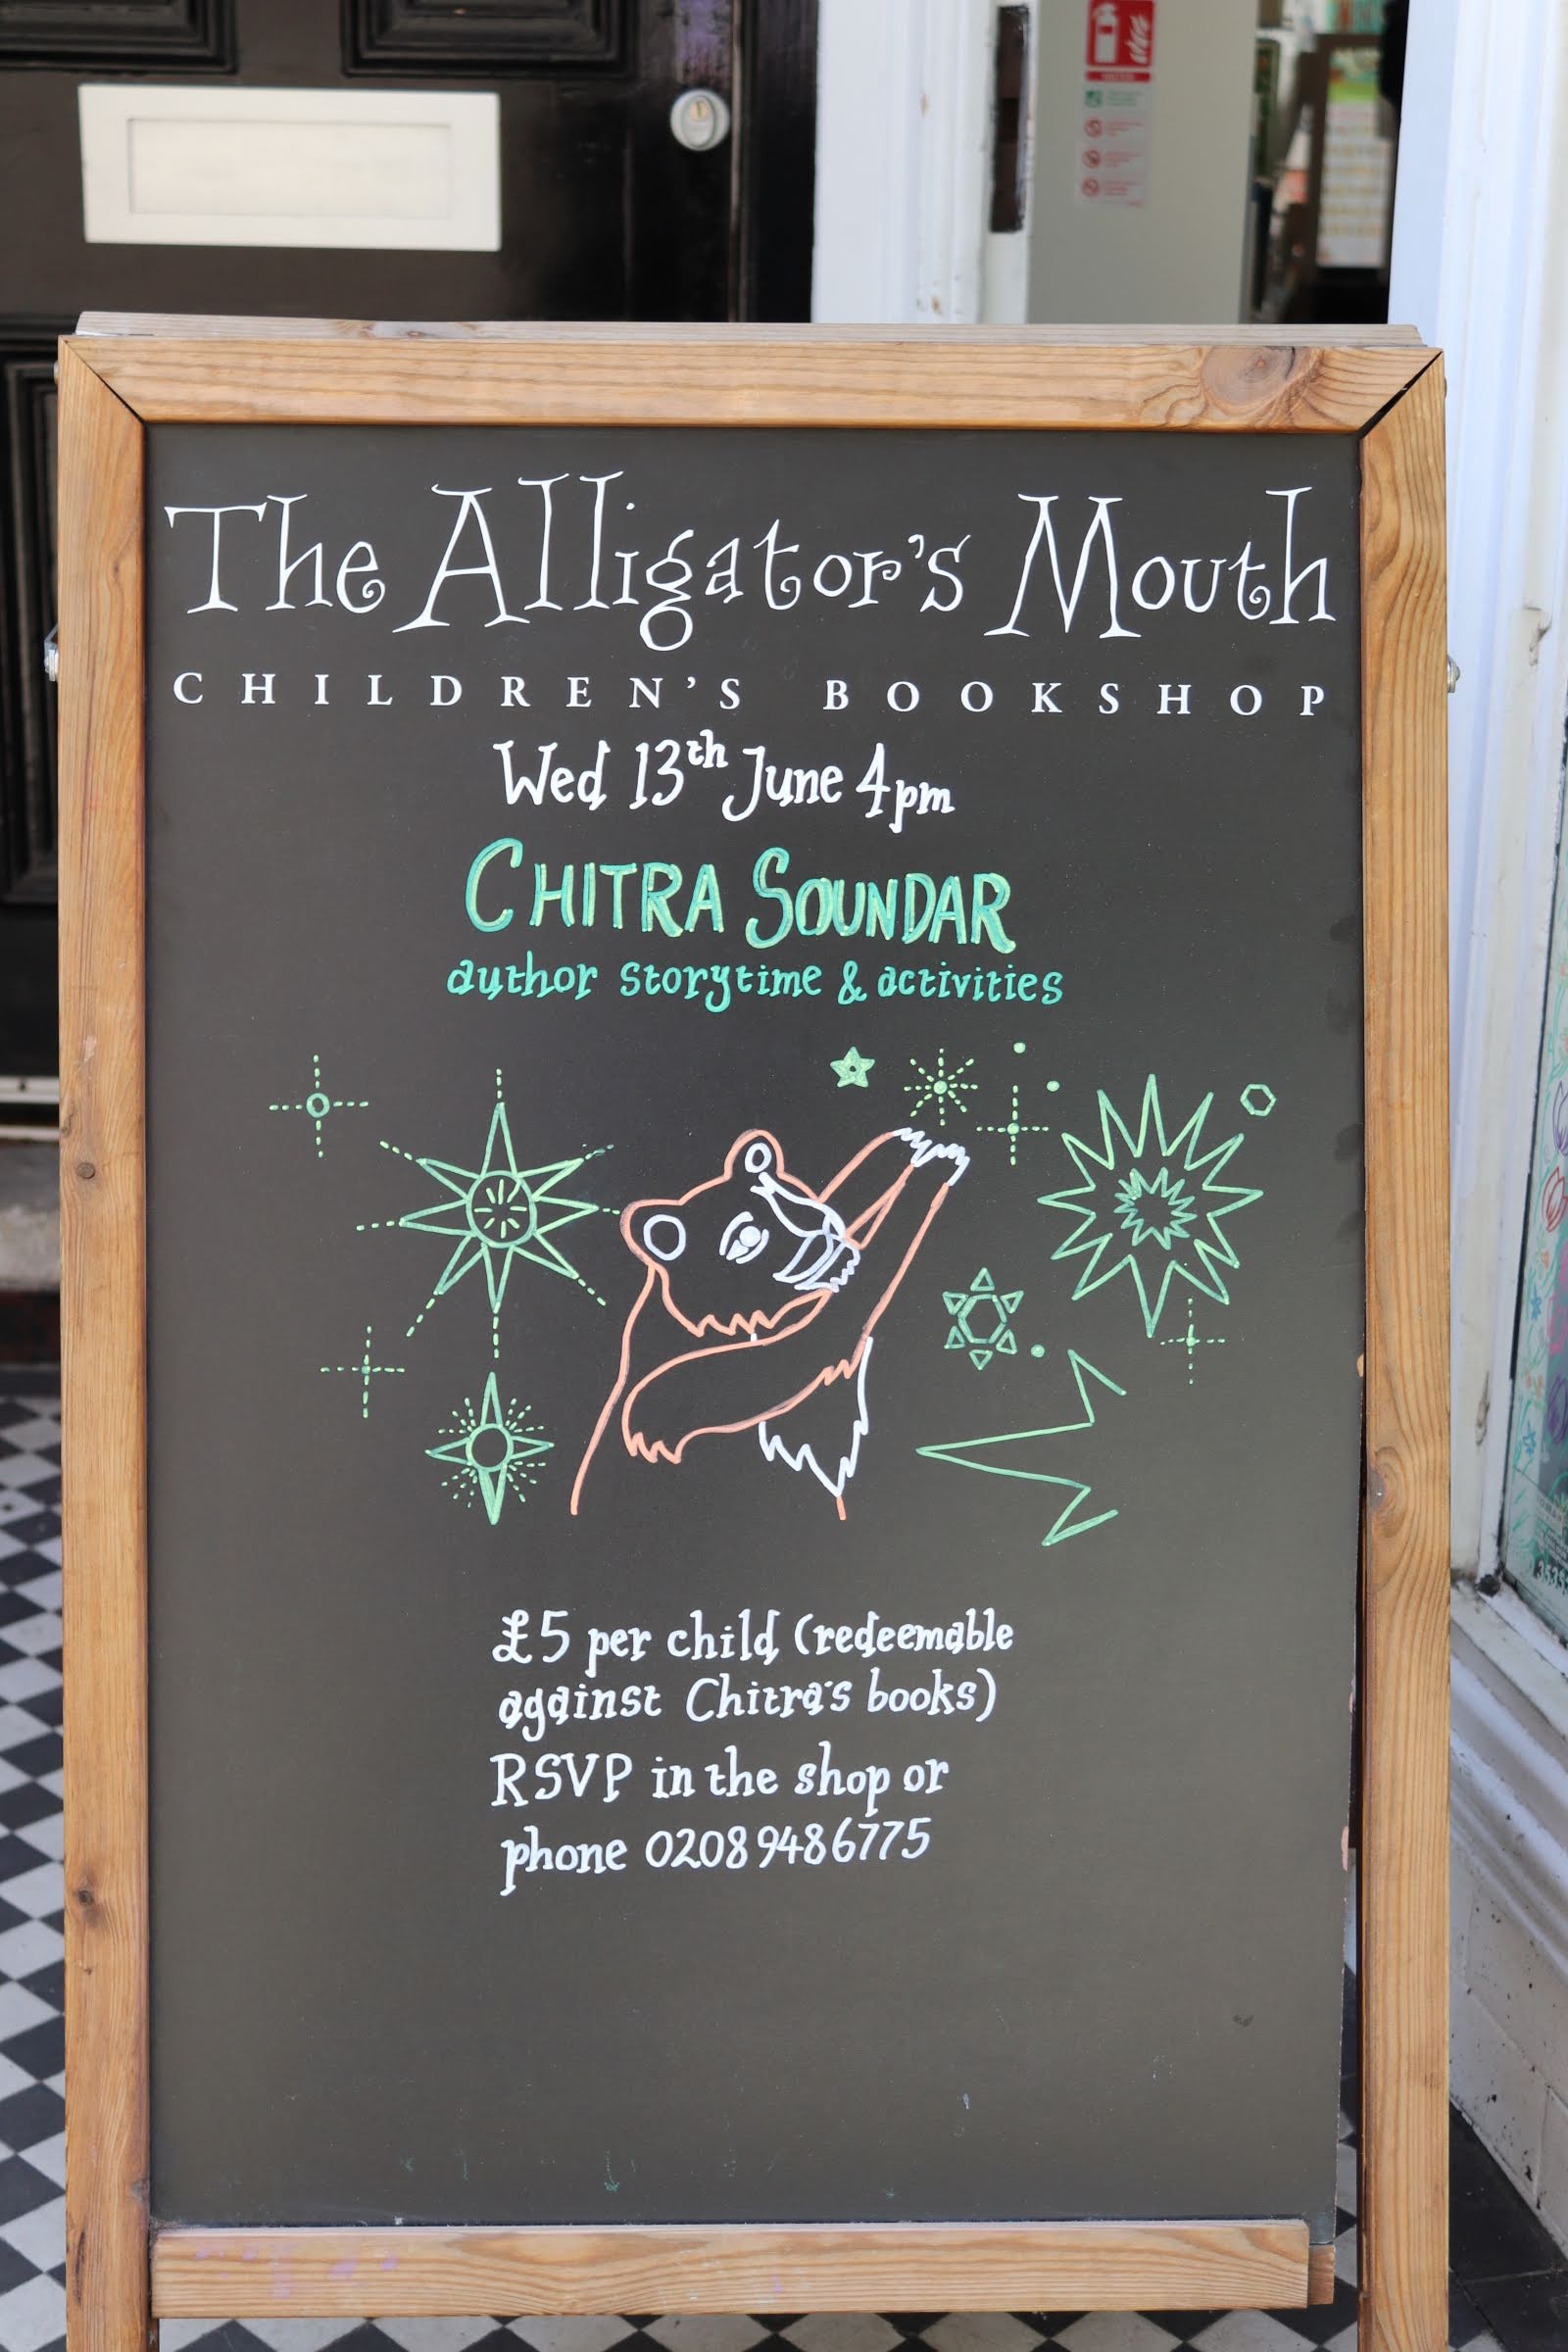 The Alligator's Mouth
CHILDREN'S BOOKSHOP
Wed 13th June 4pm
CHITRA SOUNDAR
author storytime & activities
£5 per child (redeemable
against Chitra's books)
RSVP in the shop or
phone 0208 948 6775